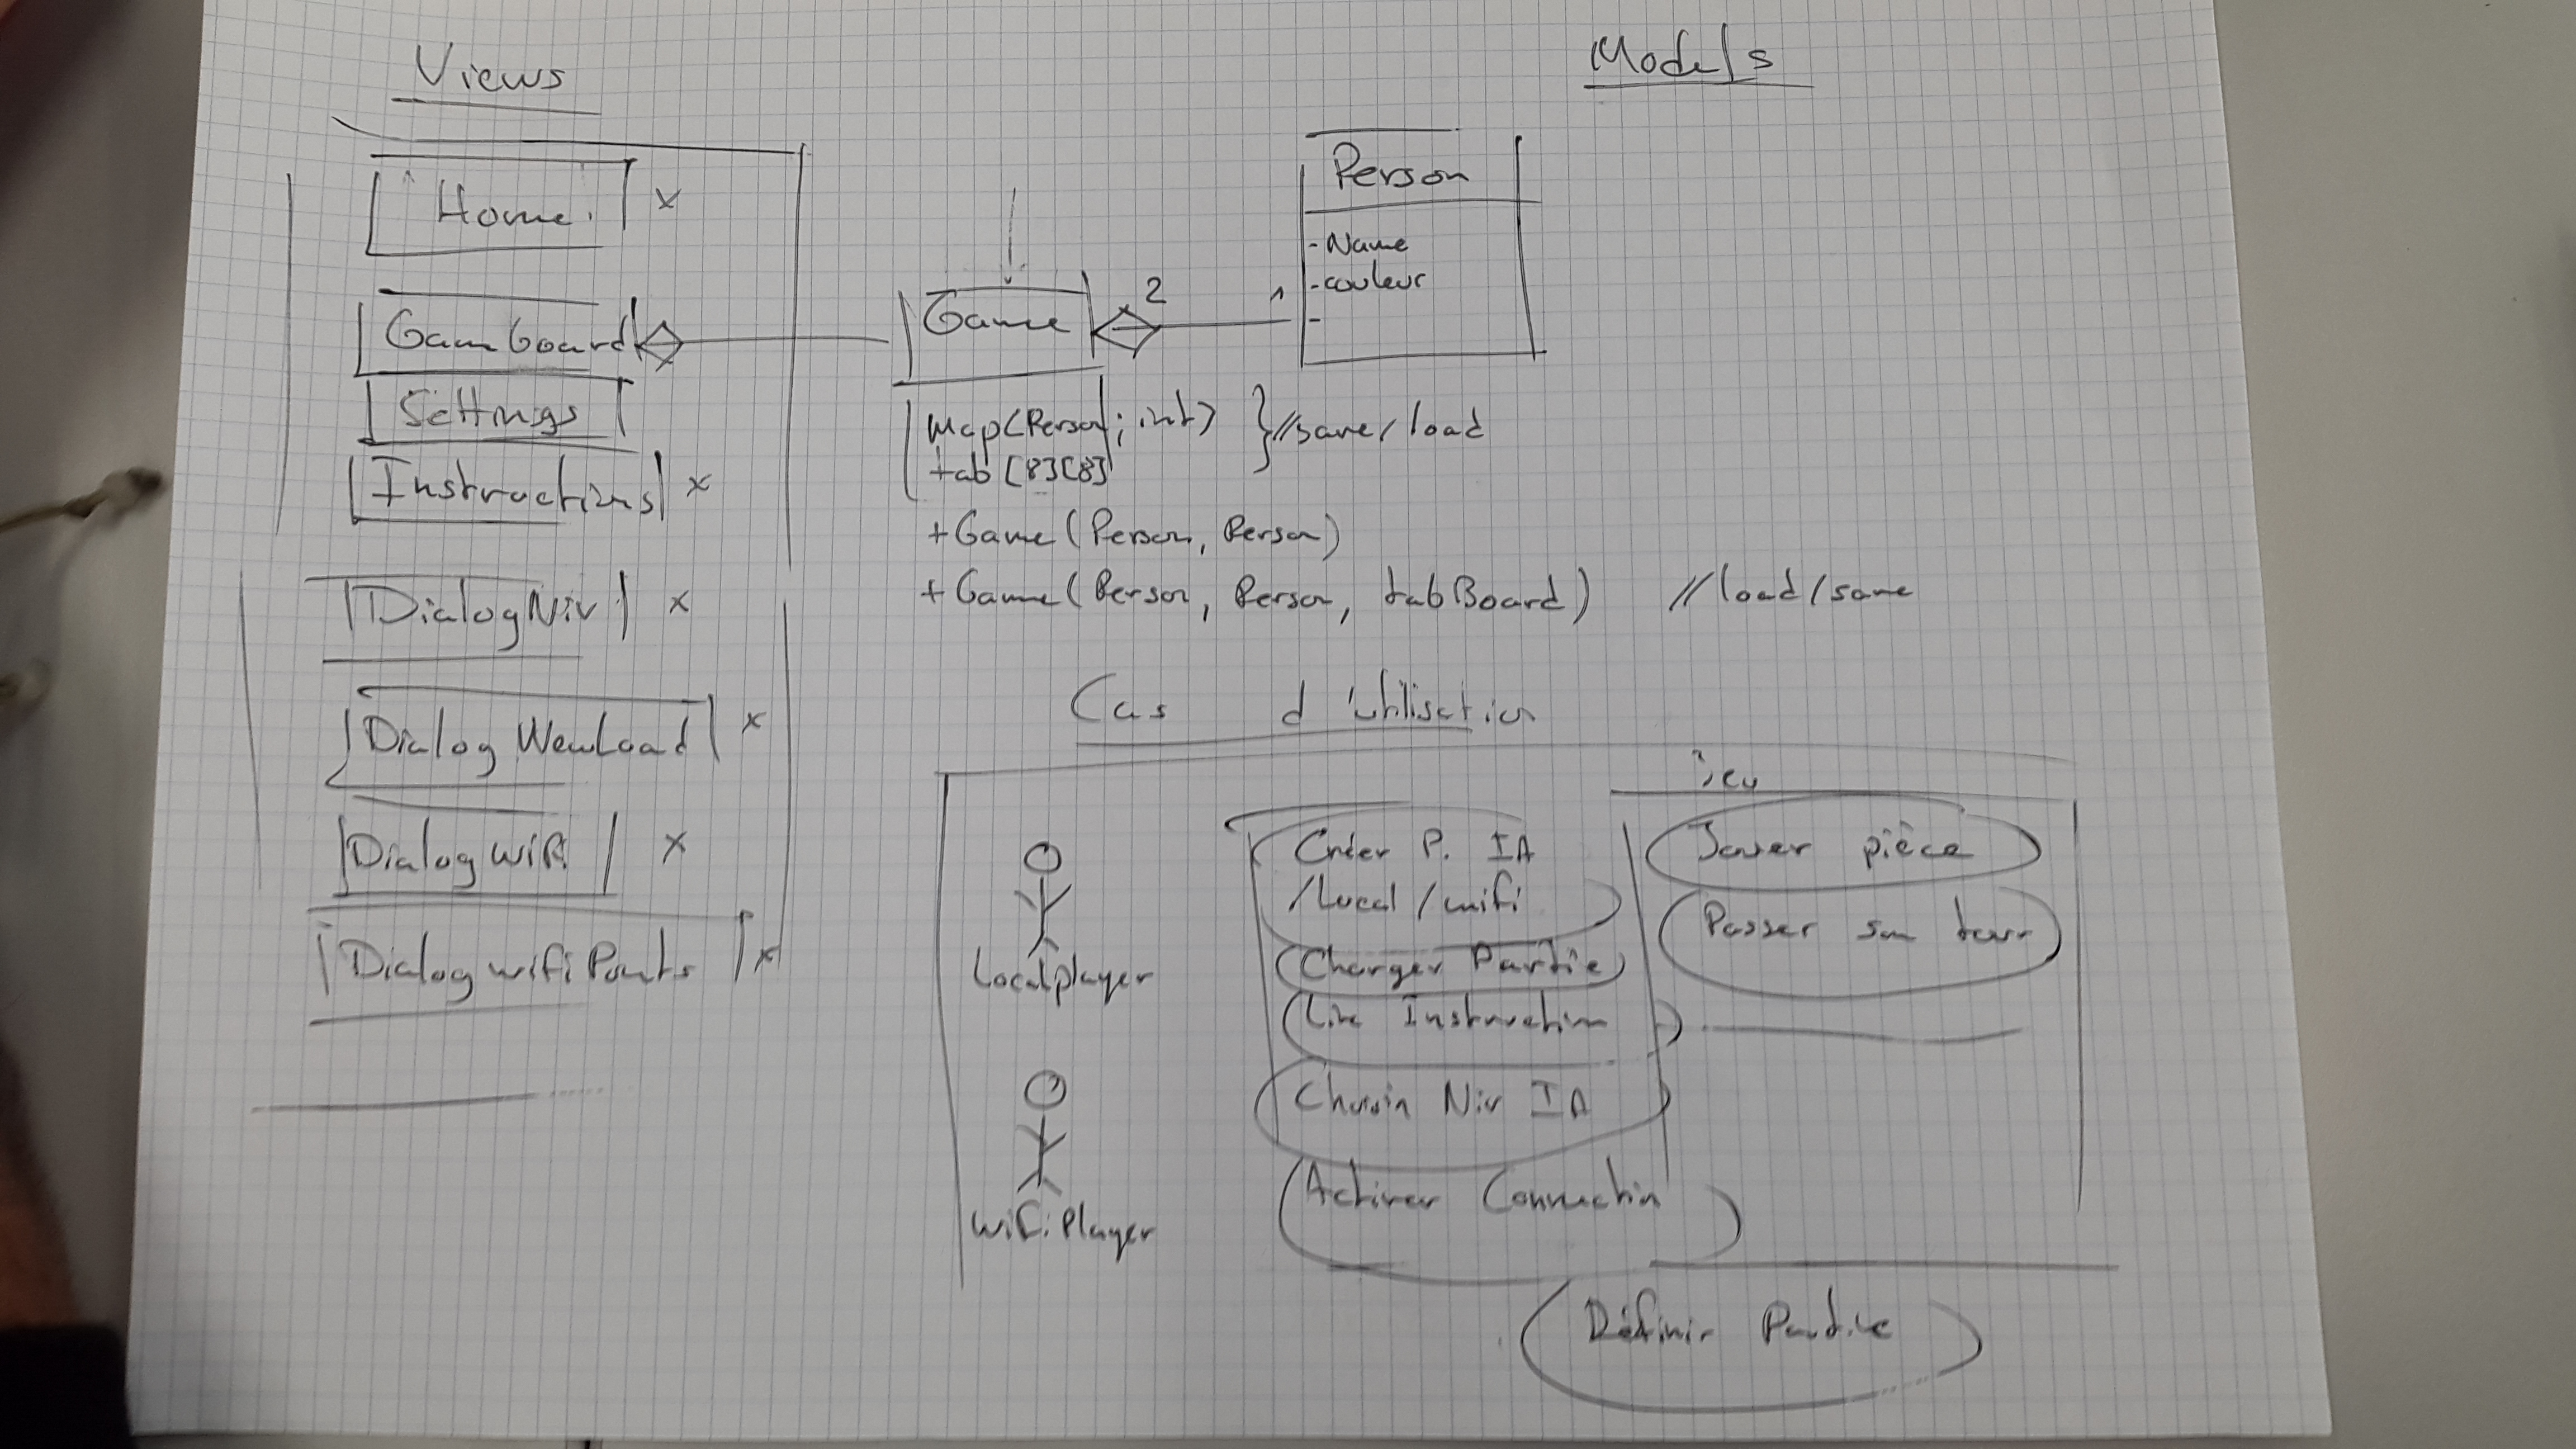 Views
Models
Home
x
Gameboard
Settings
Instructions
x
DialogNiv
x
Dialog NewLoad
x
Dialog wifi
x
Dialog wifi Points
x
Game
2
1
Person
-Name
-couleur
-
Map(Person; int)
tab [8][8]
} //save/load
+Game(Person, Person)
+Game(Person, Person, tabBoard) //load/save
Cas d'utilisation
jeu
Localplayer
WiFi Player
Créer P. IA
/Local/wifi
Charger Partie
Lire Instruction
Choisir Niv IA
Activer Connection
Jouer pièce
Passer son tour
Définir Partie